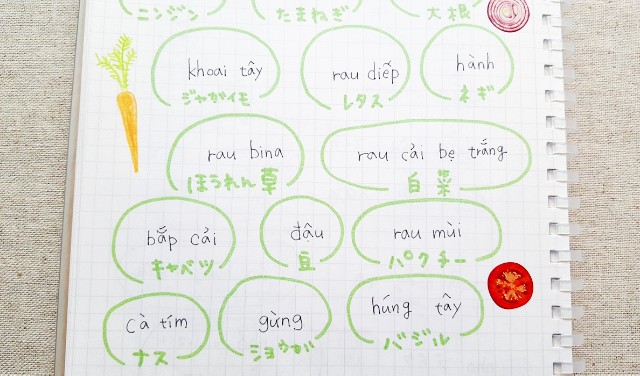 ニンジン たまねぎ 大根
khoai tây rau diếp hành
ジャガイモ レタス ネギ
rau bina rau cải bẹ trắng
ほうれん草 白菜
bắp cải đâu rau mùi
キャベツ 豆 パクチー
cà tím gừng húng tây
ナス ショウガ バジル